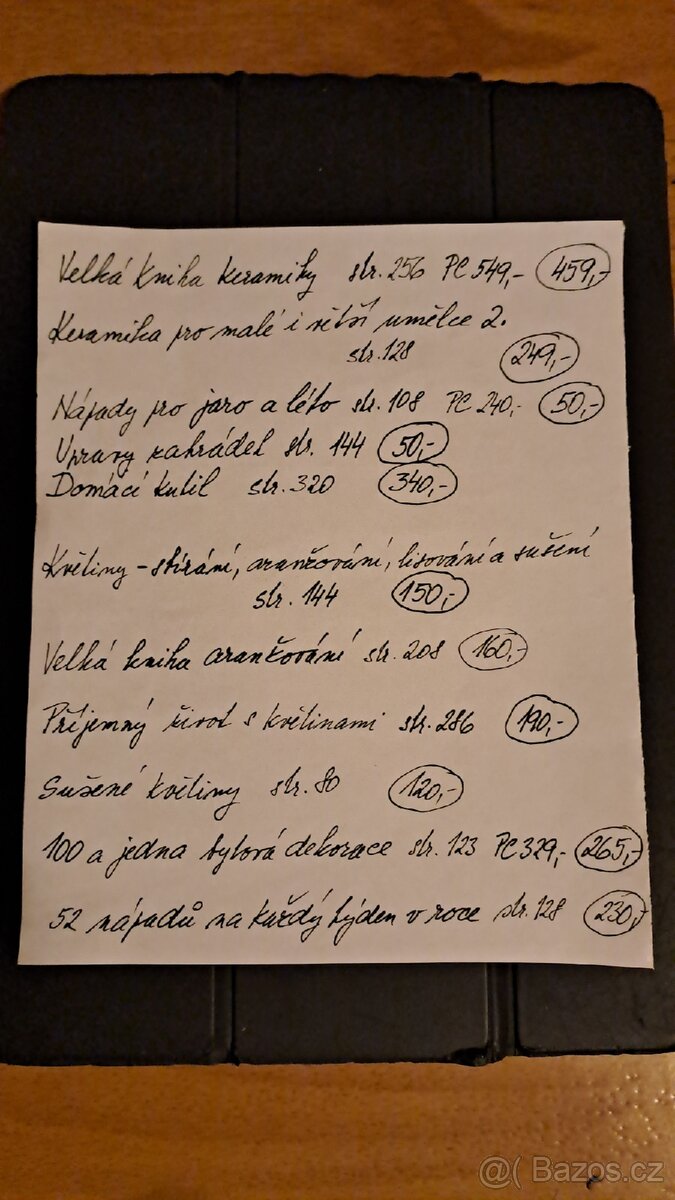 Velká kniha keramiky str. 256 PC 549,- 459,-
Keramika pro malé i větší umělce 2.
str. 128 249,-
Nápady pro jaro a léto str. 108 PC 240,- 50,-
Úpravy zahrádek str. 144 50,-
Domácí kutil str. 320 340,-
Květiny - sbírání, aranžování, lisování a sušení
str. 144 150,-
Velká kniha aranžování str. 208 160,-
Příjemný život s květinami str. 286 190,-
Sušené květiny str. 80 120,-
100 a jedna bytová dekorace str. 123 PC 329,- 265,-
52 nápadů na každý týden v roce str. 128 230,-
@( Bazos.cz